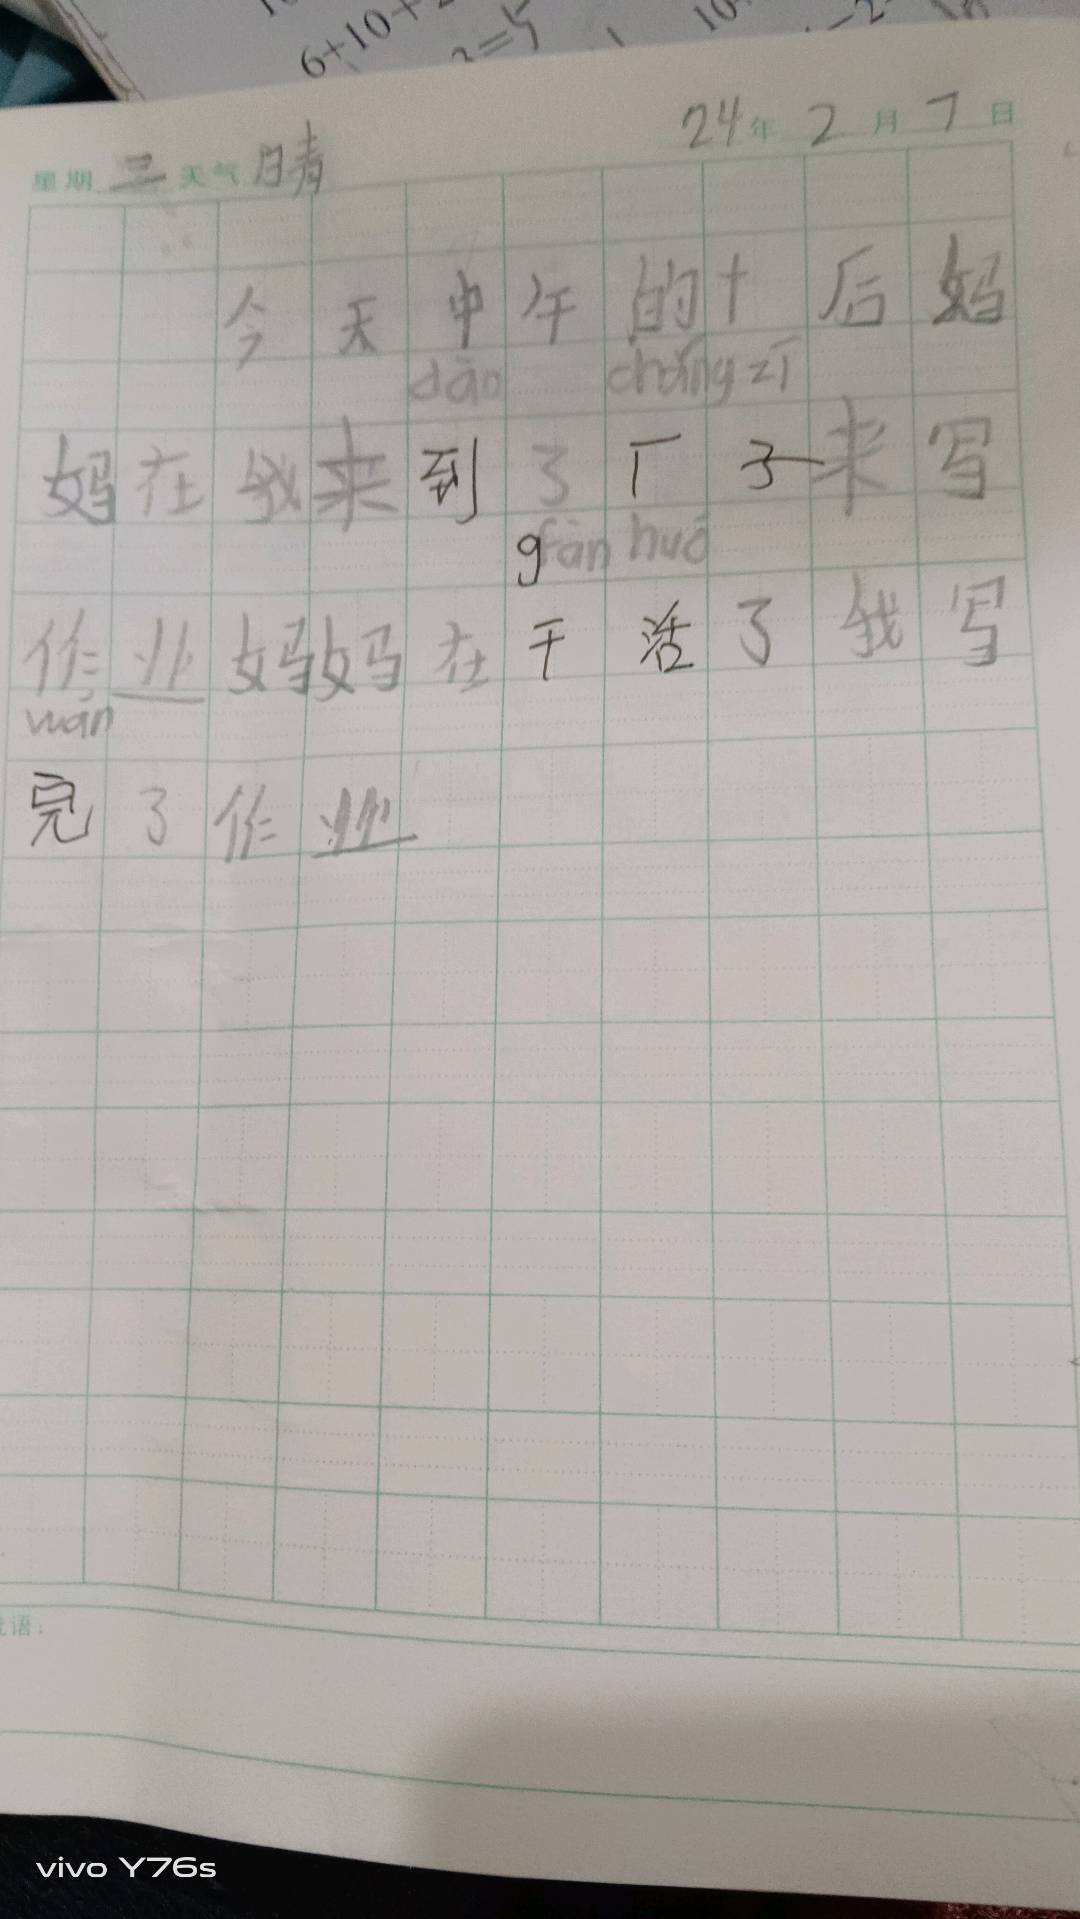 6+10+
2=5
10
-2
24年 2月 7日
星期 三 天气 晴
今天中午的十后妈
dāo chǎng zī
妈在我来到了厂子来写
gàn huó
作业妈妈在干活了我写
wán
完了作业
语:
vivo Y76s